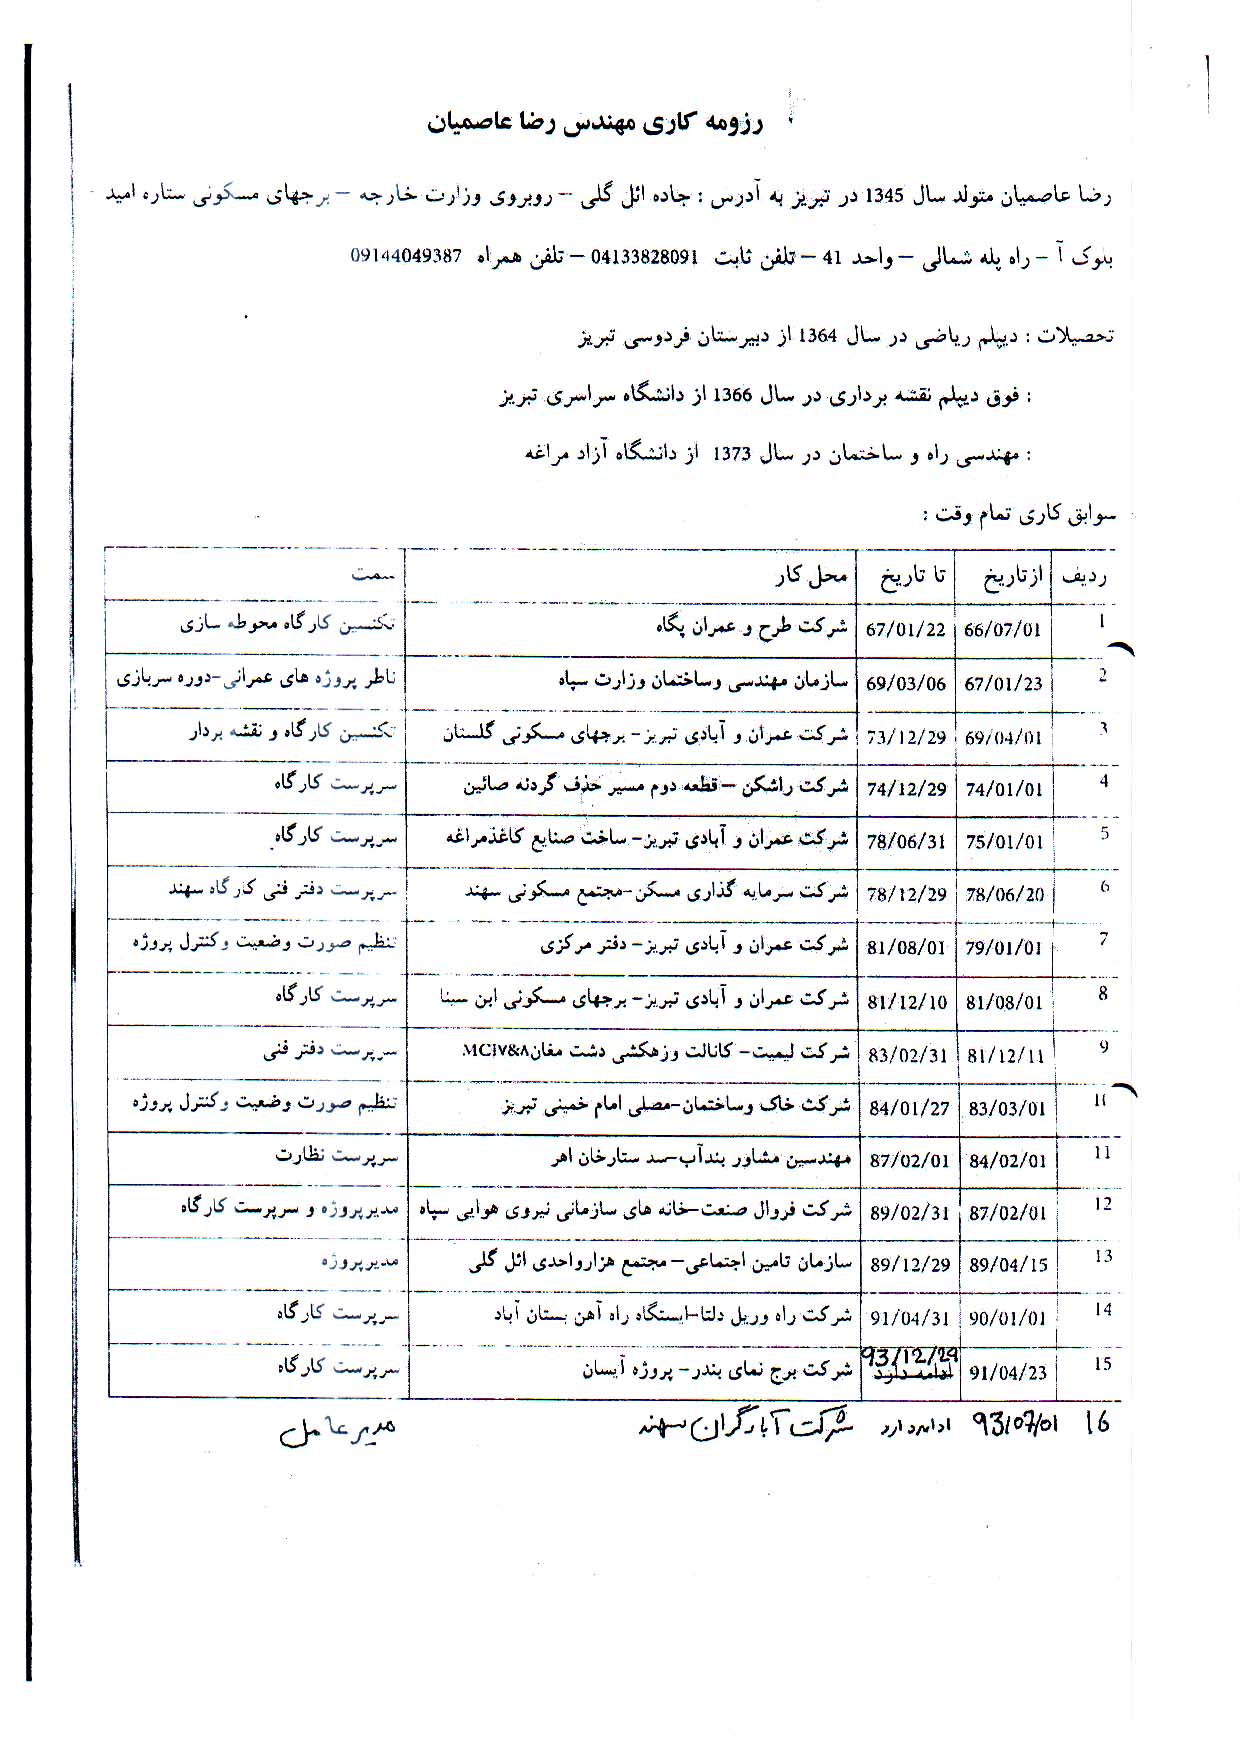 رزومه کاری مهندس رضا عاصمیان
رضا عاصمیان متولد سال 1345 در تبریز به آدرس : جاده ائل گلی – روبروی وزارت خارجه – برجهای مسکونی ستاره امید -
بلوک آ – راه پله شمالی – واحد 41 – تلفن ثابت 04133828091 – تلفن همراه 09144049387
تحصیلات : دیپلم ریاضی در سال 1364 از دبیرستان فردوسی تبریز
: فوق دیپلم نقشه برداری در سال 1366 از دانشگاه سراسری تبریز
: مهندسی راه و ساختمان در سال 1373 از دانشگاه آزاد مراغه
سوابق کاری تمام وقت :
ردیف ازتاریخ تا تاریخ محل کار سمت
1 66/07/01 67/01/22 شرکت طرح و عمران پگاه تکنسین کارگاه محوطه سازی
2 67/01/23 69/03/06 سازمان مهندسی وساختمان وزارت سپاه ناظر پروژه های عمرانی-دوره سربازی
3 69/04/01 73/12/29 شرکت عمران و آبادی تبریز- برجهای مسکونی گلستان تکنسین کارگاه و نقشه بردار
4 74/01/01 74/12/29 شرکت راشکن – قطعه دوم مسیر حذف گردنه صائین سرپرست کارگاه
5 75/01/01 78/06/31 شرکت عمران و آبادی تبریز- ساخت صنایع کاغذمراغه سرپرست کارگاه
6 78/06/20 78/12/29 شرکت سرمایه گذاری مسکن-مجتمع مسکونی سهند سرپرست دفتر فنی کارگاه سهند
7 79/01/01 81/08/01 شرکت عمران و آبادی تبریز- دفتر مرکزی تنظیم صورت وضعیت وکنترل پروژه
8 81/08/01 81/12/10 شرکت عمران و آبادی تبریز- برجهای مسکونی ابن سینا سرپرست کارگاه
9 81/12/11 83/02/31 شرکت لیمیت- کانالت وزهکشی دشت مغان MC۷&۸ سرپرست دفتر فنی
10 83/03/01 84/01/27 شرکت خاک وساختمان-مصلی امام خمینی تبریز تنظیم صورت وضعیت وکنترل پروژه
11 84/02/01 87/02/01 مهندسین مشاور بندآب-سد ستارخان اهر سرپرست نظارت
12 87/02/01 89/02/31 شرکت فروال صنعت-خانه های سازمانی نیروی هوایی سپاه مدیرپروژه و سرپرست کارگاه
13 89/04/15 89/12/29 سازمان تامین اجتماعی- مجتمع هزارواحدی ائل گلی مدیرپروژه
14 90/01/01 91/04/31 شرکت راه وریل دلتا-ایستگاه راه آهن بستان آباد سرپرست کارگاه
15 91/04/23 93/12/29 ادامه دارد شرکت برج نمای بندر- پروژه آیسان سرپرست کارگاه
16 93/07/01 ادامه دارد شرکت آبادگران سهند مدیر عامل